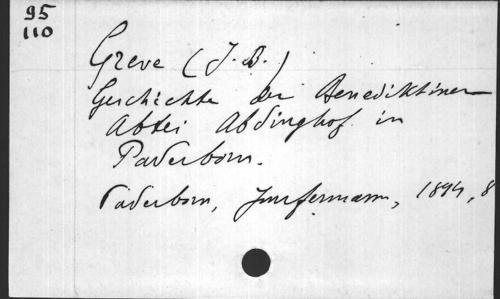 95
110
Greve (J. B.)
Geschichte der Benediktiner
Abtei Abdinghof in
Paderborn.
Paderborn, Junfermann, 1894, 8